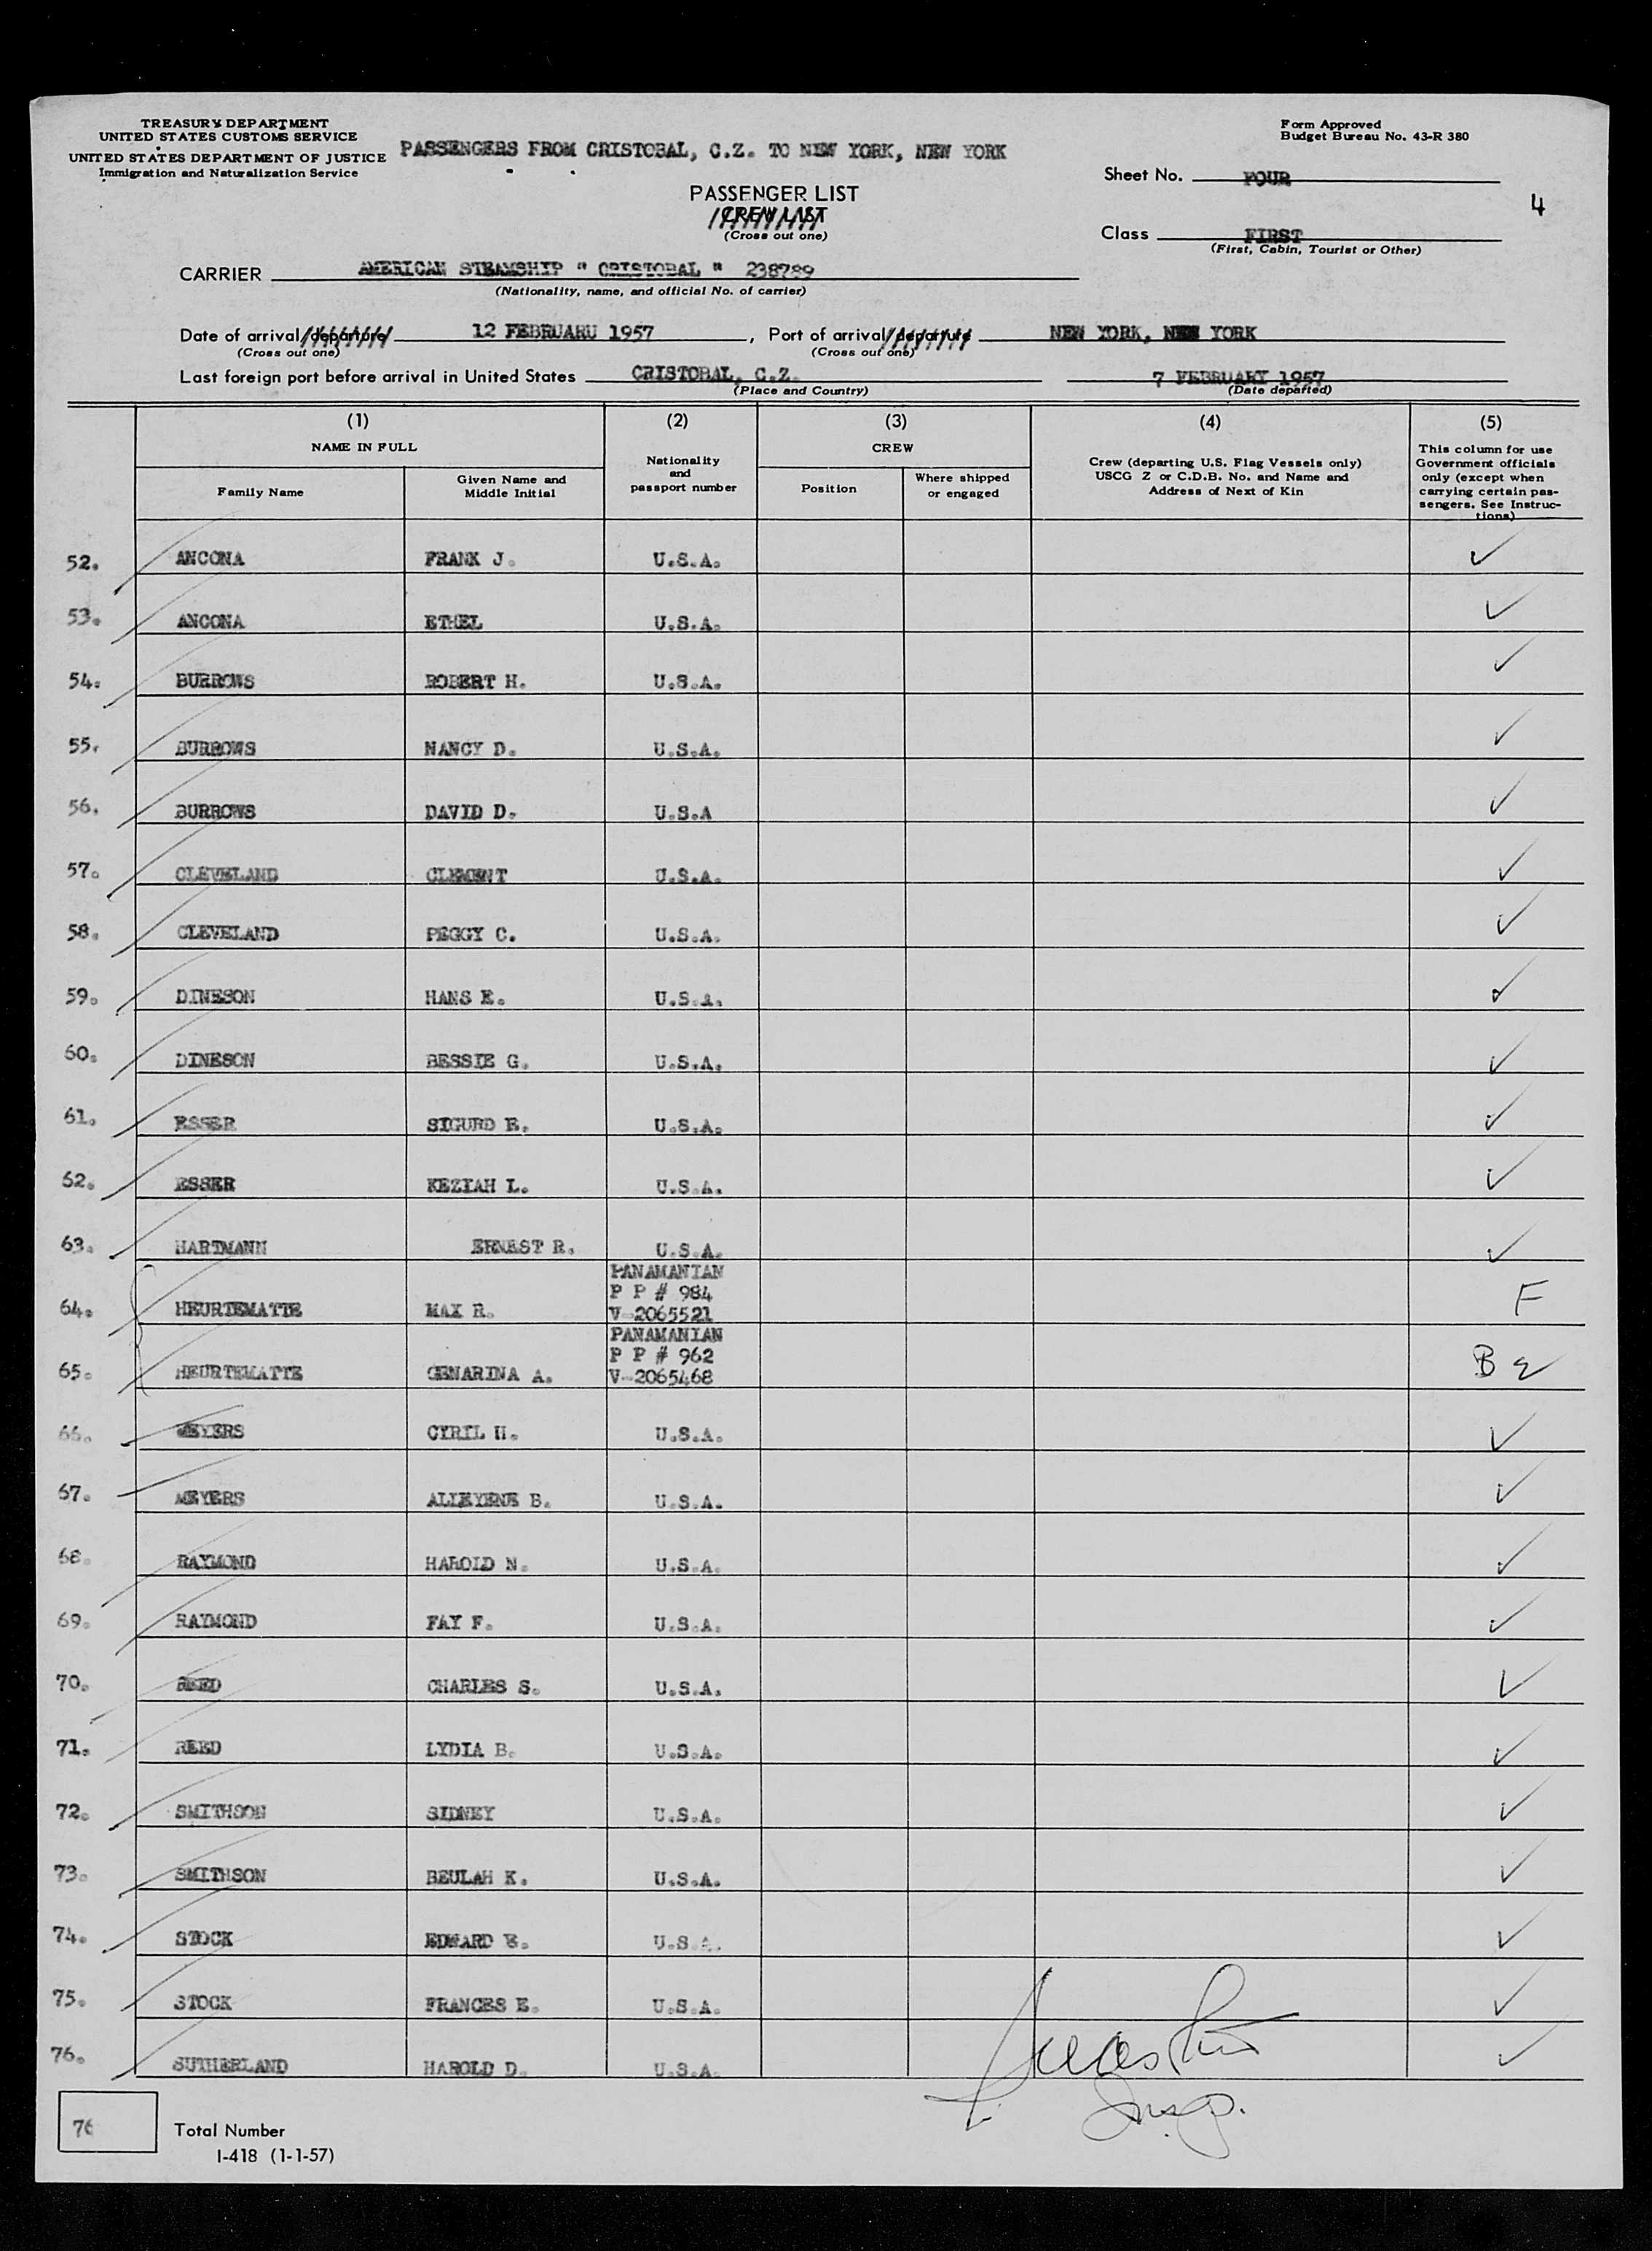 TREASURY DEPARTMENT
UNITED STATES CUSTOMS SERVICE
UNITED STATES DEPARTMENT OF JUSTICE
Immigration and Naturalization Service
PASSENGERS FROM CRISTOBAL, C.Z. TO NEW YORK, NEW YORK
Form Approved
Budget Bureau No. 43-R 380
Sheet No. FOUR
4
PASSENGER LIST
CREW LIST
(Cross out one)
Class FIRST
(First, Cabin, Tourist or Other)
CARRIER AMERICAN STEAMSHIP " CRISTOBAL " 238789
(Nationality, name, and official No. of carrier)
Date of arrival/departure 12 FEBRUARU 1957, Port of arrival/departure NEW YORK, NEW YORK
(Cross out one) (Cross out one)
Last foreign port before arrival in United States CRISTOBAL, C.Z. 7 FEBRUARY 1957
(Place and Country) (Date departed)
(1) (2) (3) (4) (5)
NAME IN FULL
Family Name
Given Name and
Middle Initial
Nationality
and
passport number
CREW
Position
Where shipped
or engaged
Crew (departing U.S. Flag Vessels only)
USCG Z or C.D.B. No. and Name and
Address of Next of Kin
This column for use
Government officials
only (except when
carrying certain pas-
sengers. See Instruc-
tions)
52. ANCONA FRANK J. U.S.A. ✓
53. ANCONA ETHEL U.S.A. ✓
54. BURROWS ROBERT H. U.S.A. ✓
55. BURROWS NANCY D. U.S.A. ✓
56. BURROWS DAVID D. U.S.A ✓
57. CLEVELAND CLEMENT U.S.A. ✓
58. CLEVELAND PEGGY C. U.S.A. ✓
59. DINESON HANS E. U.S.A. ✓
60. DINESON BESSIE G. U.S.A. ✓
61. ESSER SIGURD E. U.S.A. ✓
62. ESSER KEZIAH L. U.S.A. ✓
63. HARTMANN ERNEST R. U.S.A. ✓
PANAMANIAN
P P # 984
64. HEURTEMATTE MAX R. V-2065521 F
PANAMANIAN
P P # 962
65. HEURTEMATTE GENARINA A. V-2065468 B
66. MEYERS CYRIL H. U.S.A. ✓
67. MEYERS ALLEYENE B. U.S.A. ✓
68. RAYMOND HAROLD N. U.S.A. ✓
69. RAYMOND FAY F. U.S.A. ✓
70. REED CHARLES S. U.S.A. ✓
71. REED LYDIA B. U.S.A. ✓
72. SMITHSON SIDNEY U.S.A. ✓
73. SMITHSON BEULAH K. U.S.A. ✓
74. STOCK EDWARD E. U.S.A. ✓
75. STOCK FRANCES E. U.S.A. ✓
76. SUTHERLAND HAROLD D. U.S.A. ✓
Insp.
76
Total Number
I-418 (1-1-57)